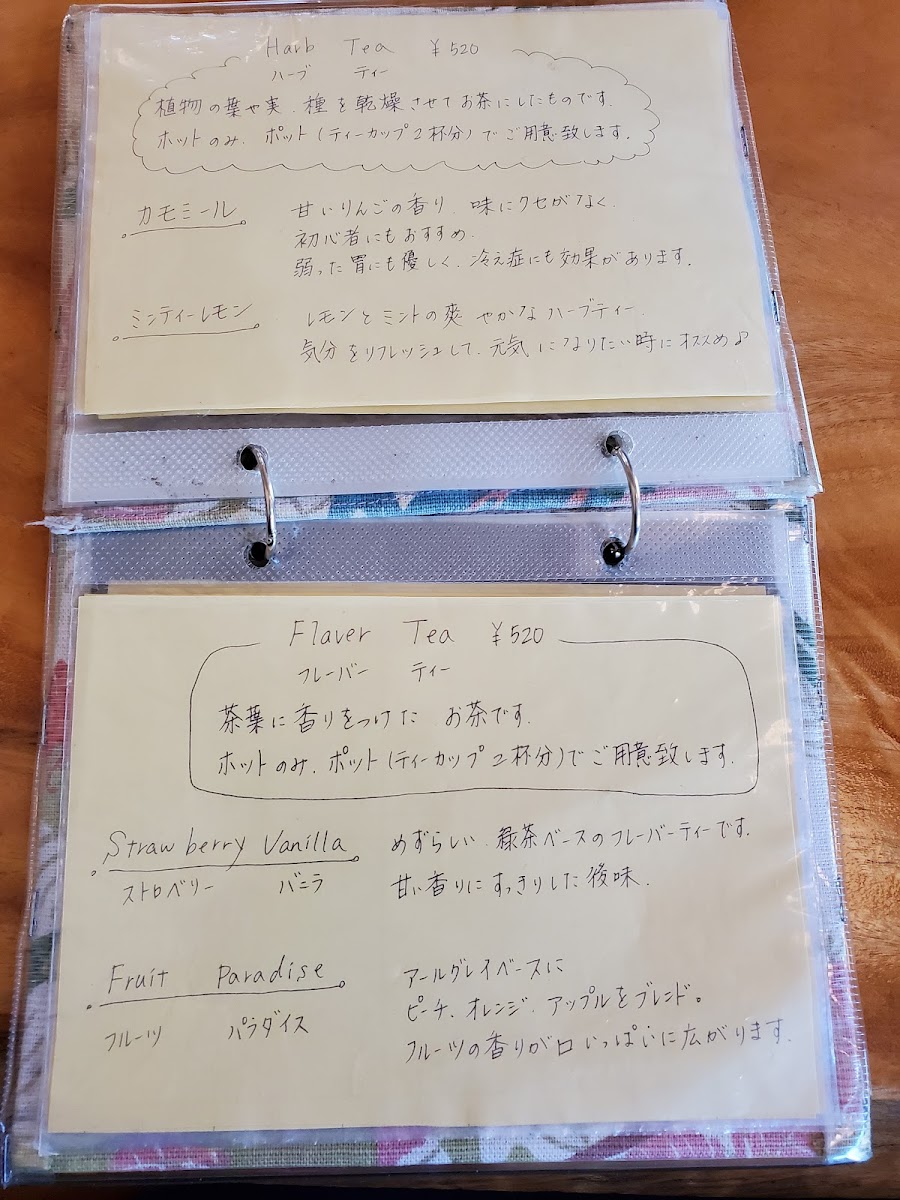 Harb Tea ¥520
ハーブ ティー
植物の葉や実、種を乾燥させてお茶にしたものです。
ホットのみ、ポット(ティーカップ2杯分)でご用意致します。
カモミール
甘いりんごの香り、味にクセがなく、
初心者にもおすすめ。
弱った胃にも優しく、冷え症にも効果があります。
ミンティーレモン
レモンとミントの爽やかなハーブティー。
気分をリフレッシュして、元気になりたい時にオススメ♪
Flaver Tea ¥520
フレーバー ティー
茶葉に香りをつけた お茶です。
ホットのみ、ポット(ティーカップ2杯分)でご用意致します。
Strawberry Vanilla
ストロベリー バニラ
めずらしい 緑茶ベースのフレーバーティーです。
甘い香りにすっきりした後味。
Fruit Paradise
フルーツ パラダイス
アールグレイベースに
ピーチ、オレンジ、アップルをブレンド。
フルーツの香りが口いっぱいに広がります。